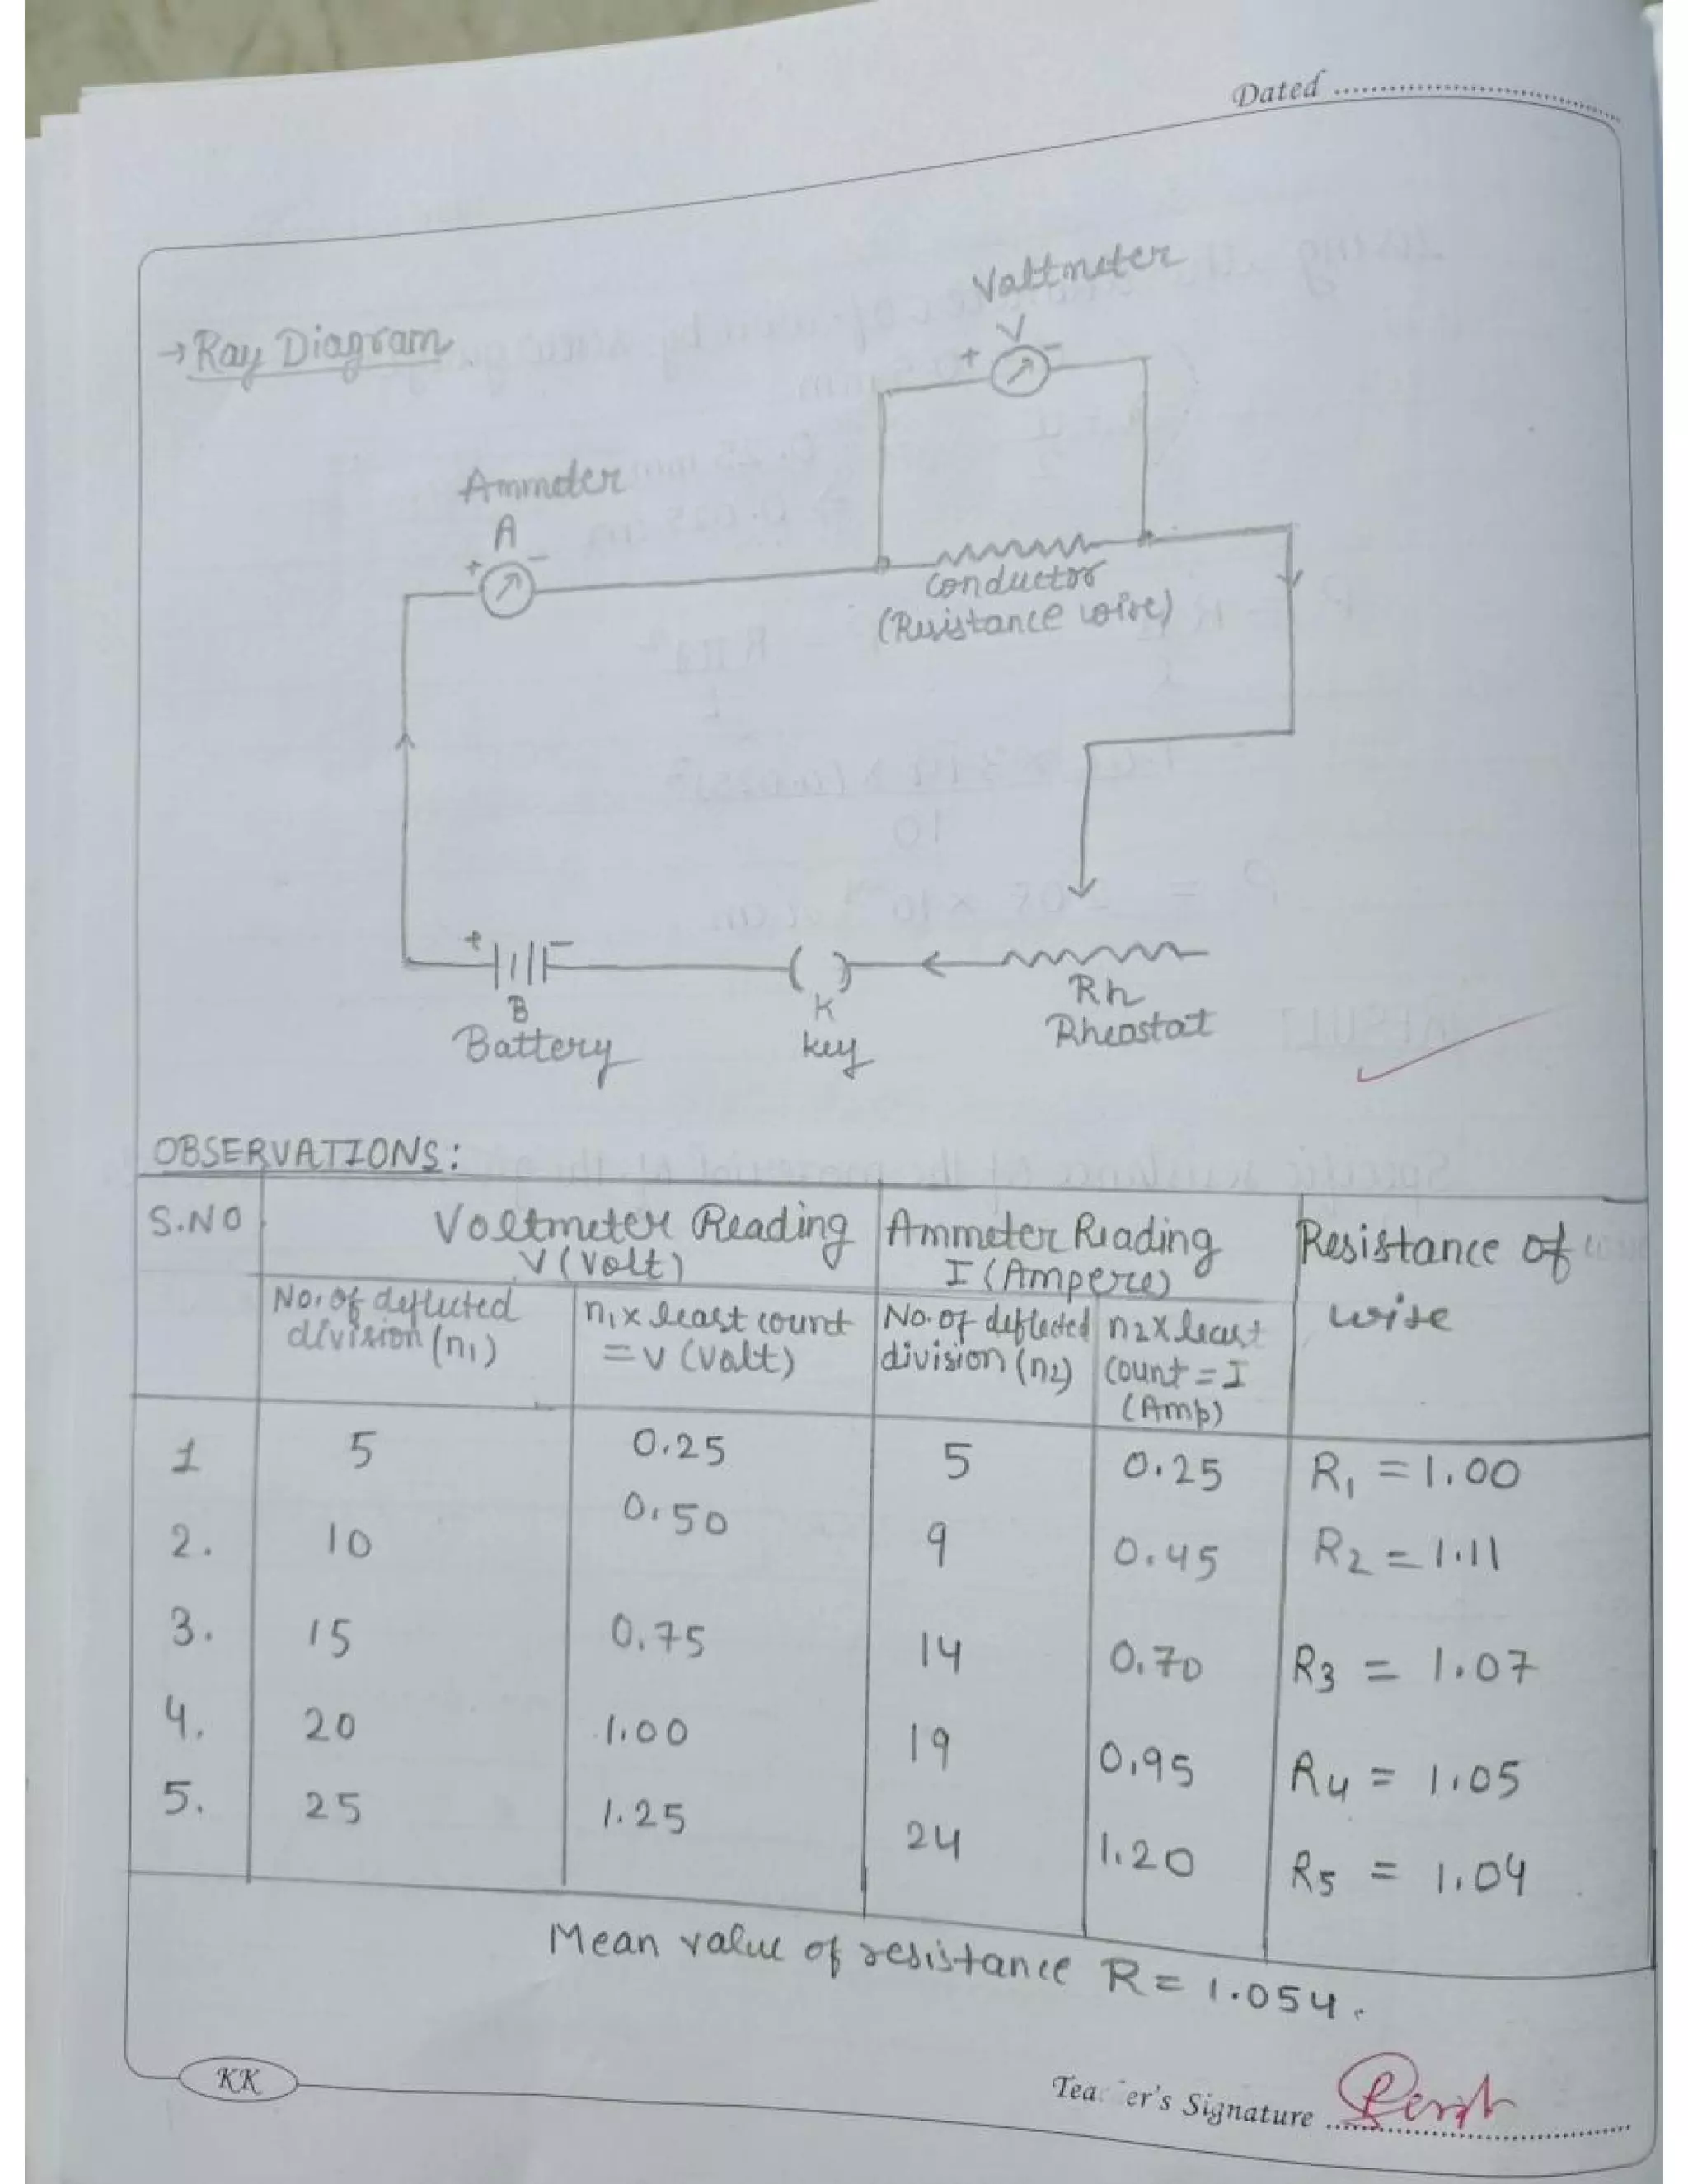 Dated
→ Ray Diagram.
Voltmeter
V
+ -
Ammeter
A
+ -
Conductor
(Resistance wire)
+ -
B
Battery
( )
K
key
Rh
Rheostat
OBSERVATIONS:
S.NO
Voltmeter Reading
V (Volt)
Ammeter Reading
I (Ampere)
Resistance of
wire
No. of deflected
division (n1)
n1 x least count
= V (Volt)
No. of deflected
division (n2)
n2 x least
count = I
(Amp)
1 5 0.25 5 0.25 R1 = 1.00
2. 10 0.50 9 0.45 R2 = 1.11
3. 15 0.75 14 0.70 R3 = 1.07
4. 20 1.00 19 0.95 R4 = 1.05
5. 25 1.25 24 1.20 R5 = 1.04
Mean value of resistance R = 1.054.
KK
Teacher's Signature